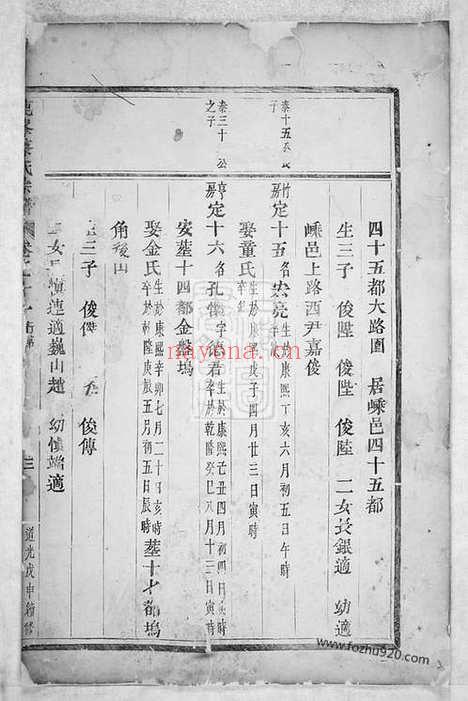 四十五都大路園 居嵊邑四十五都
生三子 俊陞 俊陛 俊陸 二女長銀適 幼適
嵊邑上路西尹嘉俊
泰十五
子
竹房定十五名 亮生於康熙丁亥六月初五日午時
娶童氏生於康熙戊子四月廿三日寅時
卒
泰三十 公
之子
亨房定十六名孔傑字德君生於康熙己丑四月初四日亥時
卒於乾隆癸巳八月十三日寅時
安塟十四都金盤塢
娶金氏生於康熙辛卯七月二十日亥時
卒於乾隆庚戌五月初五日辰時塟十才都塢
角後山
三子 俊傑 俊傳
女長 適巍山趙 幼 適
三
道光戊申續修
nayona.cn
www.fozhu920.com